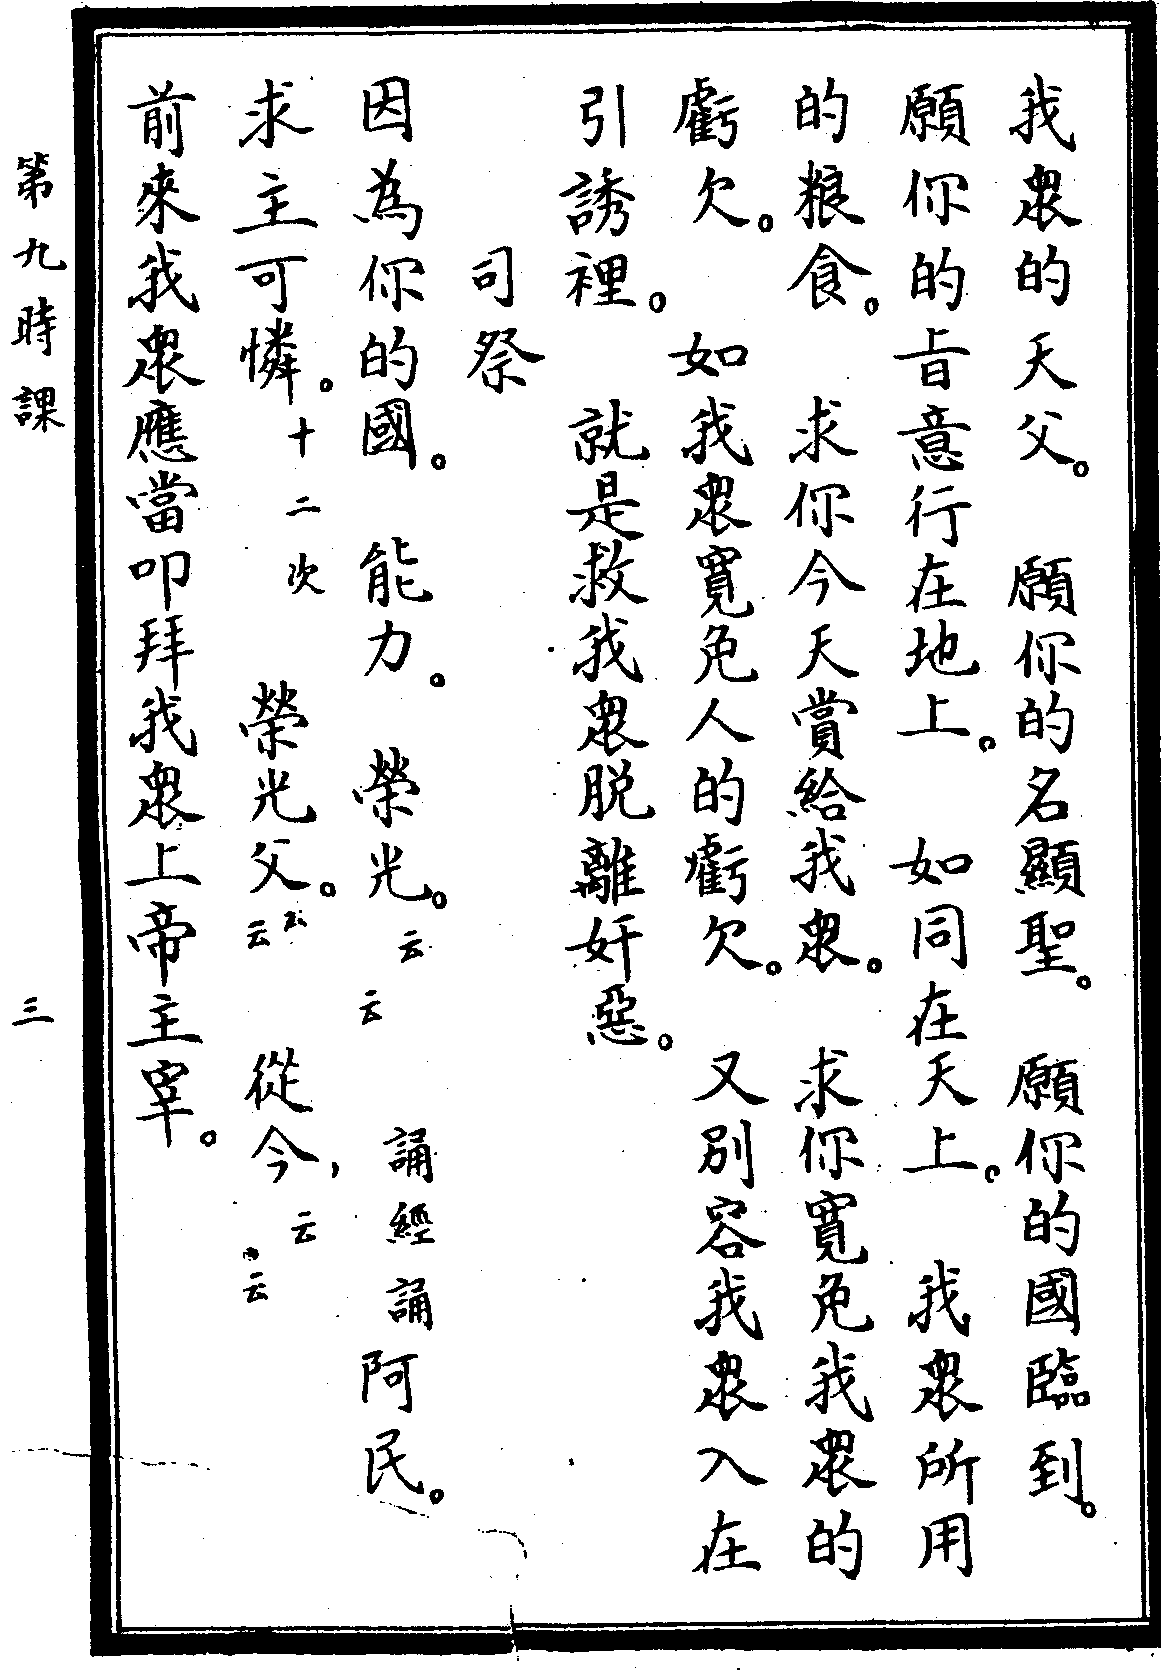 我衆的天父。願你的名顯聖。願你的國臨到。
願你的旨意行在地上。如同在天上。我衆所用
的粮食。求你今天賞給我衆。求你寬免我衆的
虧欠。如我衆寬免人的虧欠。又別容我衆入在
引誘裡。就是救我衆脱離奸惡。
司祭
因為你的國。能力。榮光。云云 誦經誦阿民。
求主可憐。十二次 榮光父。云云 從今,云云
前來我衆應當叩拜我衆上帝主宰。
第九時課 三